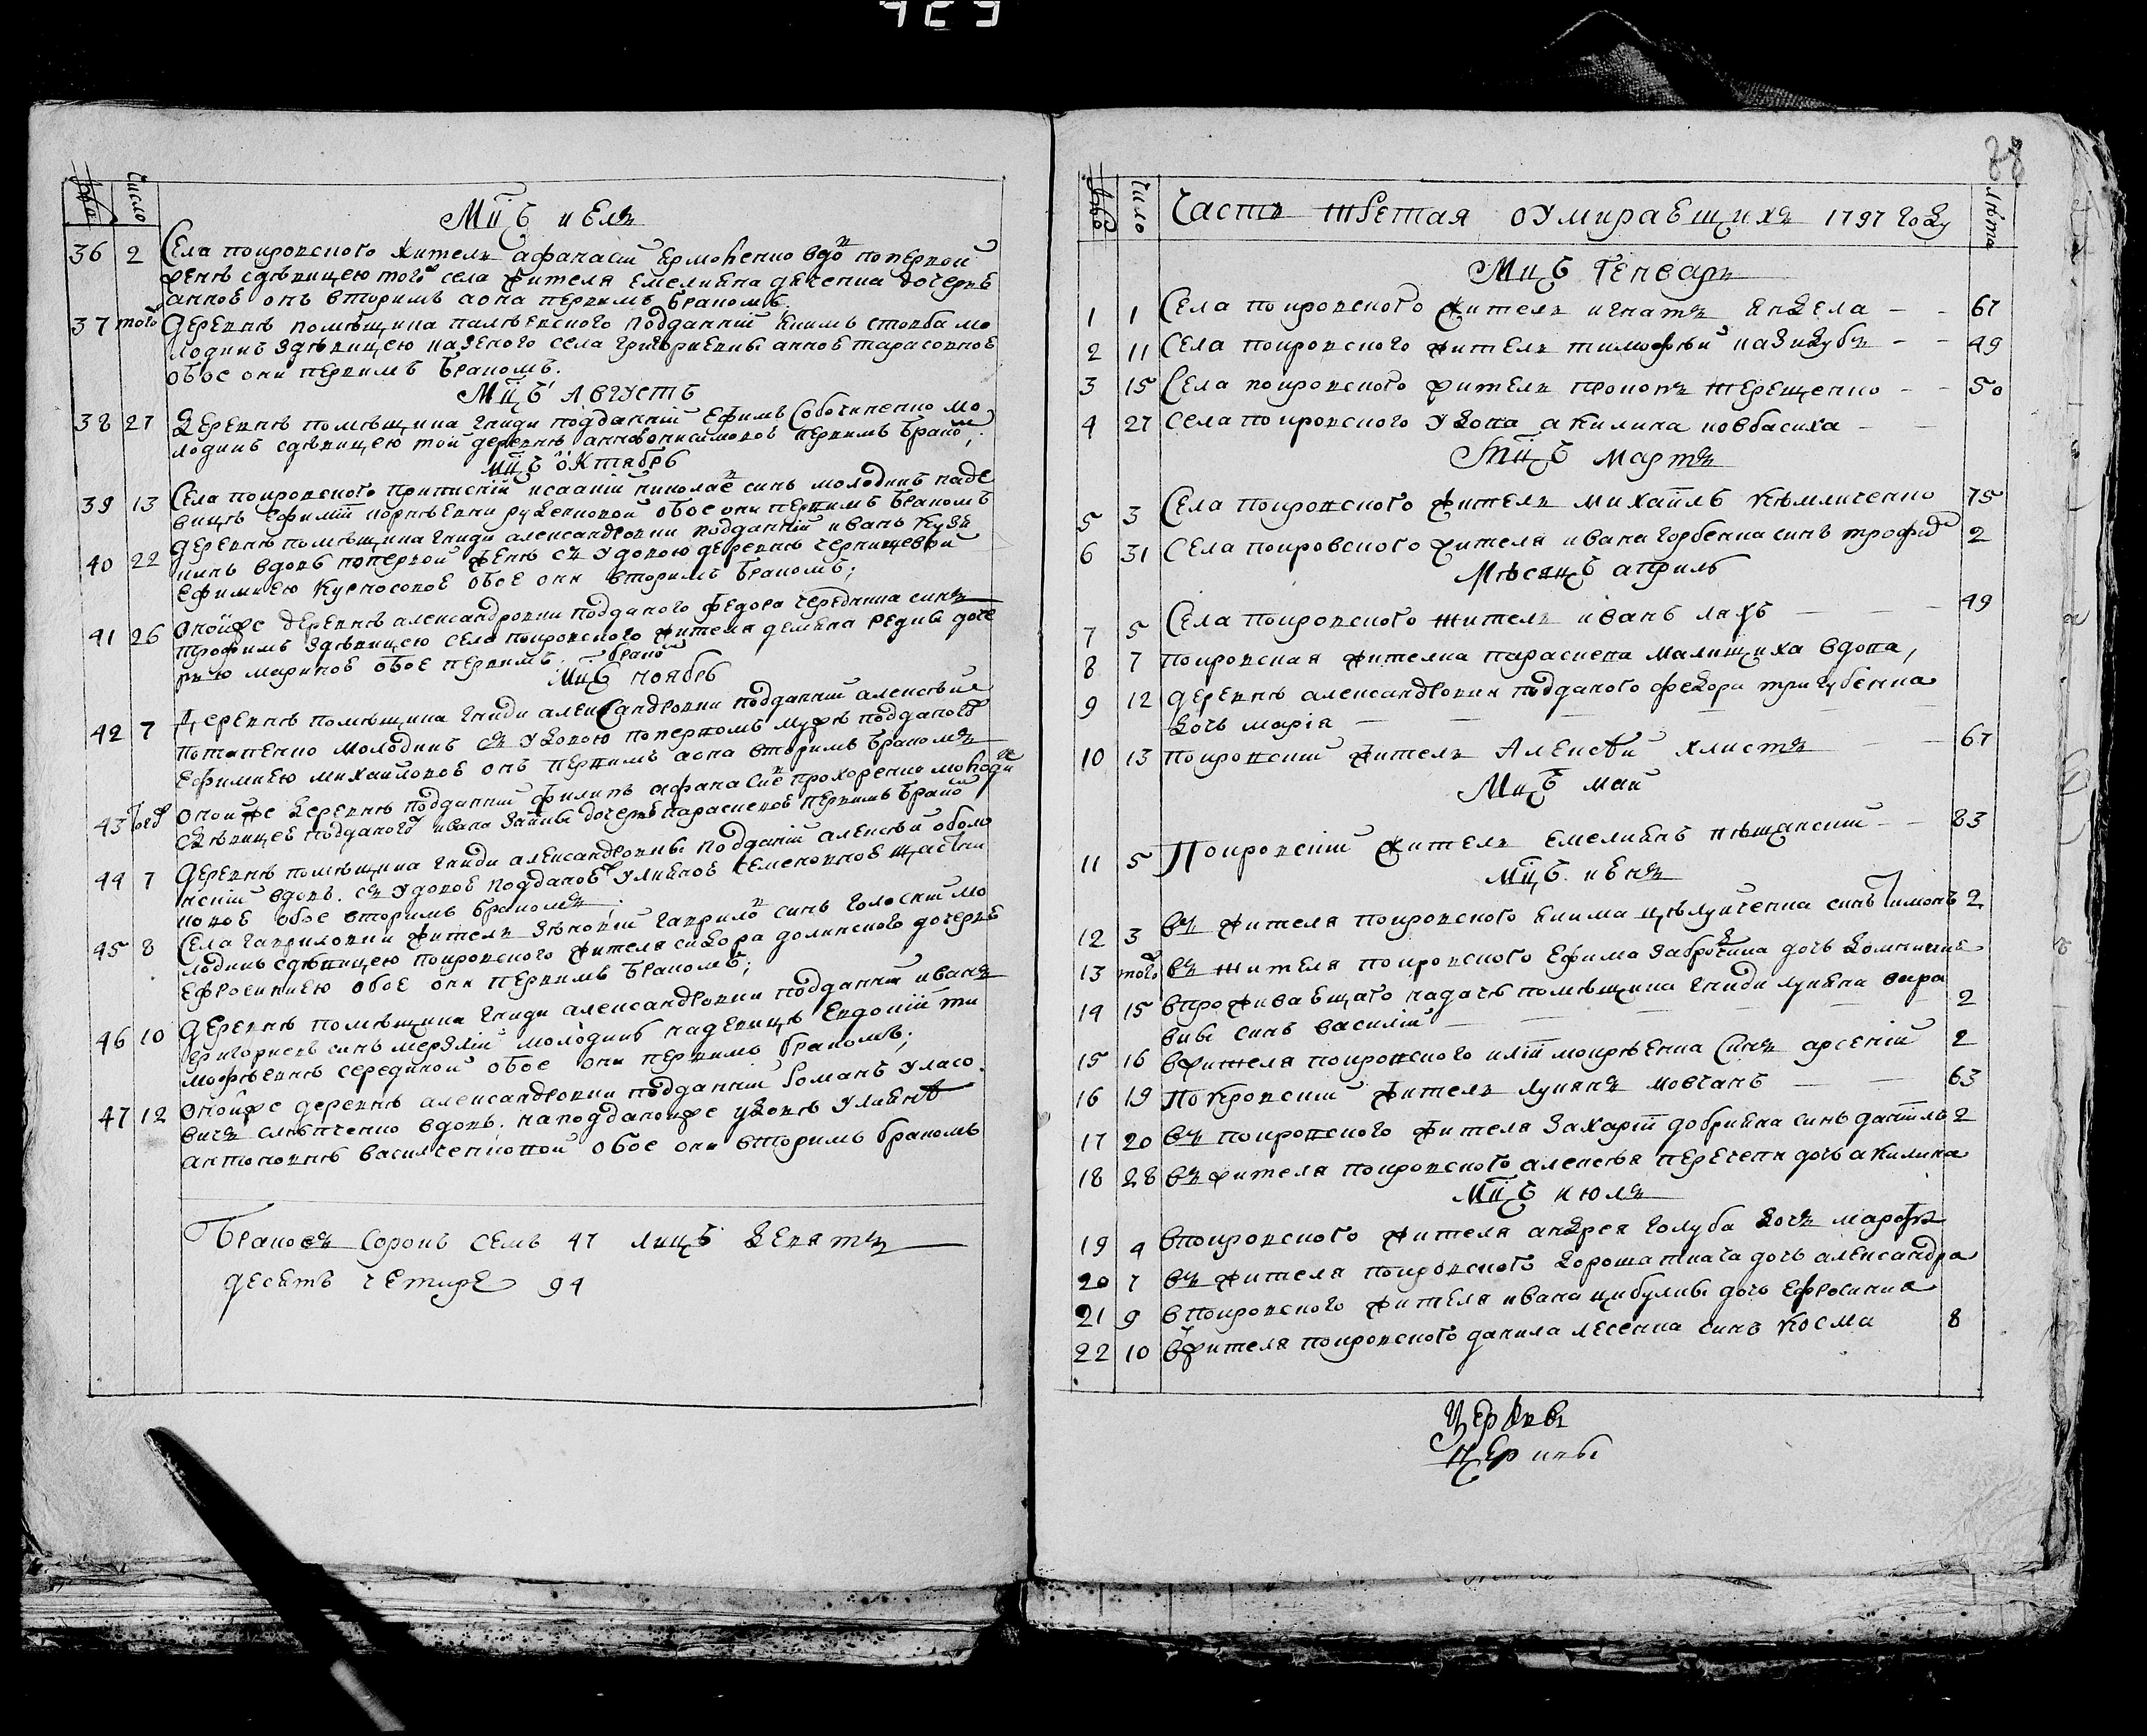 число
Мцъ июль
36 2 Села покровского житель афанасий ермоленко вдов по первой
жене сдевицею того села жителя емелияна дяченка дочерью
анною онъ вторимъ аона первимъ бракомъ.
37 того деревне помещика палеевского подданний еким стовба мо
лодикъ здевицею казеного села григориевки анною тарасовною
обое они первимъ бракомъ.
Мцъ Августъ
38 27 деревне помещика гниди подданний ефимъ Соботненко мо
лодикъ сдевицею той деревне анною онисимовою первимъ брако
Мцъ октябрь
39 13 Села покровского исаакий николаев синъ молодикъ на де
вице ефимии корнеевни руденковой обое они первимъ бракомъ
40 22 деревне помещика гниди александровки подданний иванъ Кузь
минъ вдовъ по первой жене съ удовою деревне чернищевки
ефимиею курносовою обое они вторимъ бракомъ;
41 26 Оной же деревне александровки подданого федора чередника синъ
трофимъ здевицею села покровского жителя демяна редки доче
рью мариною обое первимъ брако
Мцъ ноябрь
42 7 деревне помещика гниди александровки подданний алексий
потапенко молодикъ съ удовою по первомъ муже подданого
ефимиею михайловою онъ первимъ аона вторимъ бракомъ
43 оной же деревне подданний филипъ афанасиев прохоренко молодик
сдевицею подданого ивана заики дочерью параскевою первимъ брако
44 7 деревне помещика гниди александровки подданий алексий оболо
нский вдовъ. съ удовою подданою улияною семеновною
обое вторимъ бракомъ.
45 8 Села гавриловки житель зеновий гаврилов синъ голоский мо
лодикъ сдевицею покровского жителя сидора долинского дочерью
ефросиниею обое они первимъ бракомъ;
46 10 деревне помещика гниди александровки подданний иванъ
григориевъ синъ мерзлий молодикъ на девице евдокии ти
мофеевне серединой обое они первимъ бракомъ;
47 12 оной же деревне александровки подданний романъ уласо
вичъ слепченко вдовъ. на подданой же удове улияне
антоновне василченковой обое они вторимъ бракомъ
Браковъ сорокъ семъ 47 лицъ девятъ
десятъ четире 94
28
число Часть третая оумирающихъ 1797 году лета
Мцъ Генварь
1 1 Села покровского житель игнатъ индела - - 67
2 11 Села покровского житель тимофей казидубъ - - 49
3 15 Села покровского житель прокопъ терещенко - - 50
4 27 Села покровского удова акилина ковбасиха - -
Мцъ мартъ
5 3 Села покровского житель михаилъ кемличенко 75
6 31 Села покровского жителя ивана горбенка синъ трофим 2
Месяцъ априль
7 5 Села покровского житель иванъ ляхъ - - - 49
8 7 покровская жителка параскева малищиха вдова,
9 12 деревне александровки подданого федора тригубенка
дочь мария - - - -
10 13 покровский житель Алексей хлистъ - - 67
Мцъ май
11 5 Покровский житель емелиянъ нещанский - - 83
Мцъ июнь
12 3 въ жителя покровского екима целуйченка синъ тимонъ 2
13 того въ жителя покровского ефима забродина дочь домникия
14 15 впроживающаго надаче помещика гниди лукяна вира
вки синъ василий - - - 2
15 16 вжителя покровского илии мокреенка синъ арсений 2
16 19 Покровский житель лукянъ мовчанъ - - 63
17 20 въ покровского жителя захарии добрияна синъ даниилъ 2
18 28 въ жителя покровского алексея перечепи дочь акилина
Мцъ июль
19 4 впокровского жителя андрея голуба дочь марфа
20 7 въ жителя покровского дорошаткача дочь александра
21 9 впокровского жителя ивана цибулки дочь ефросиния
22 10 вжителя покровского данила лесенка синъ косма 8
церкви
церкви